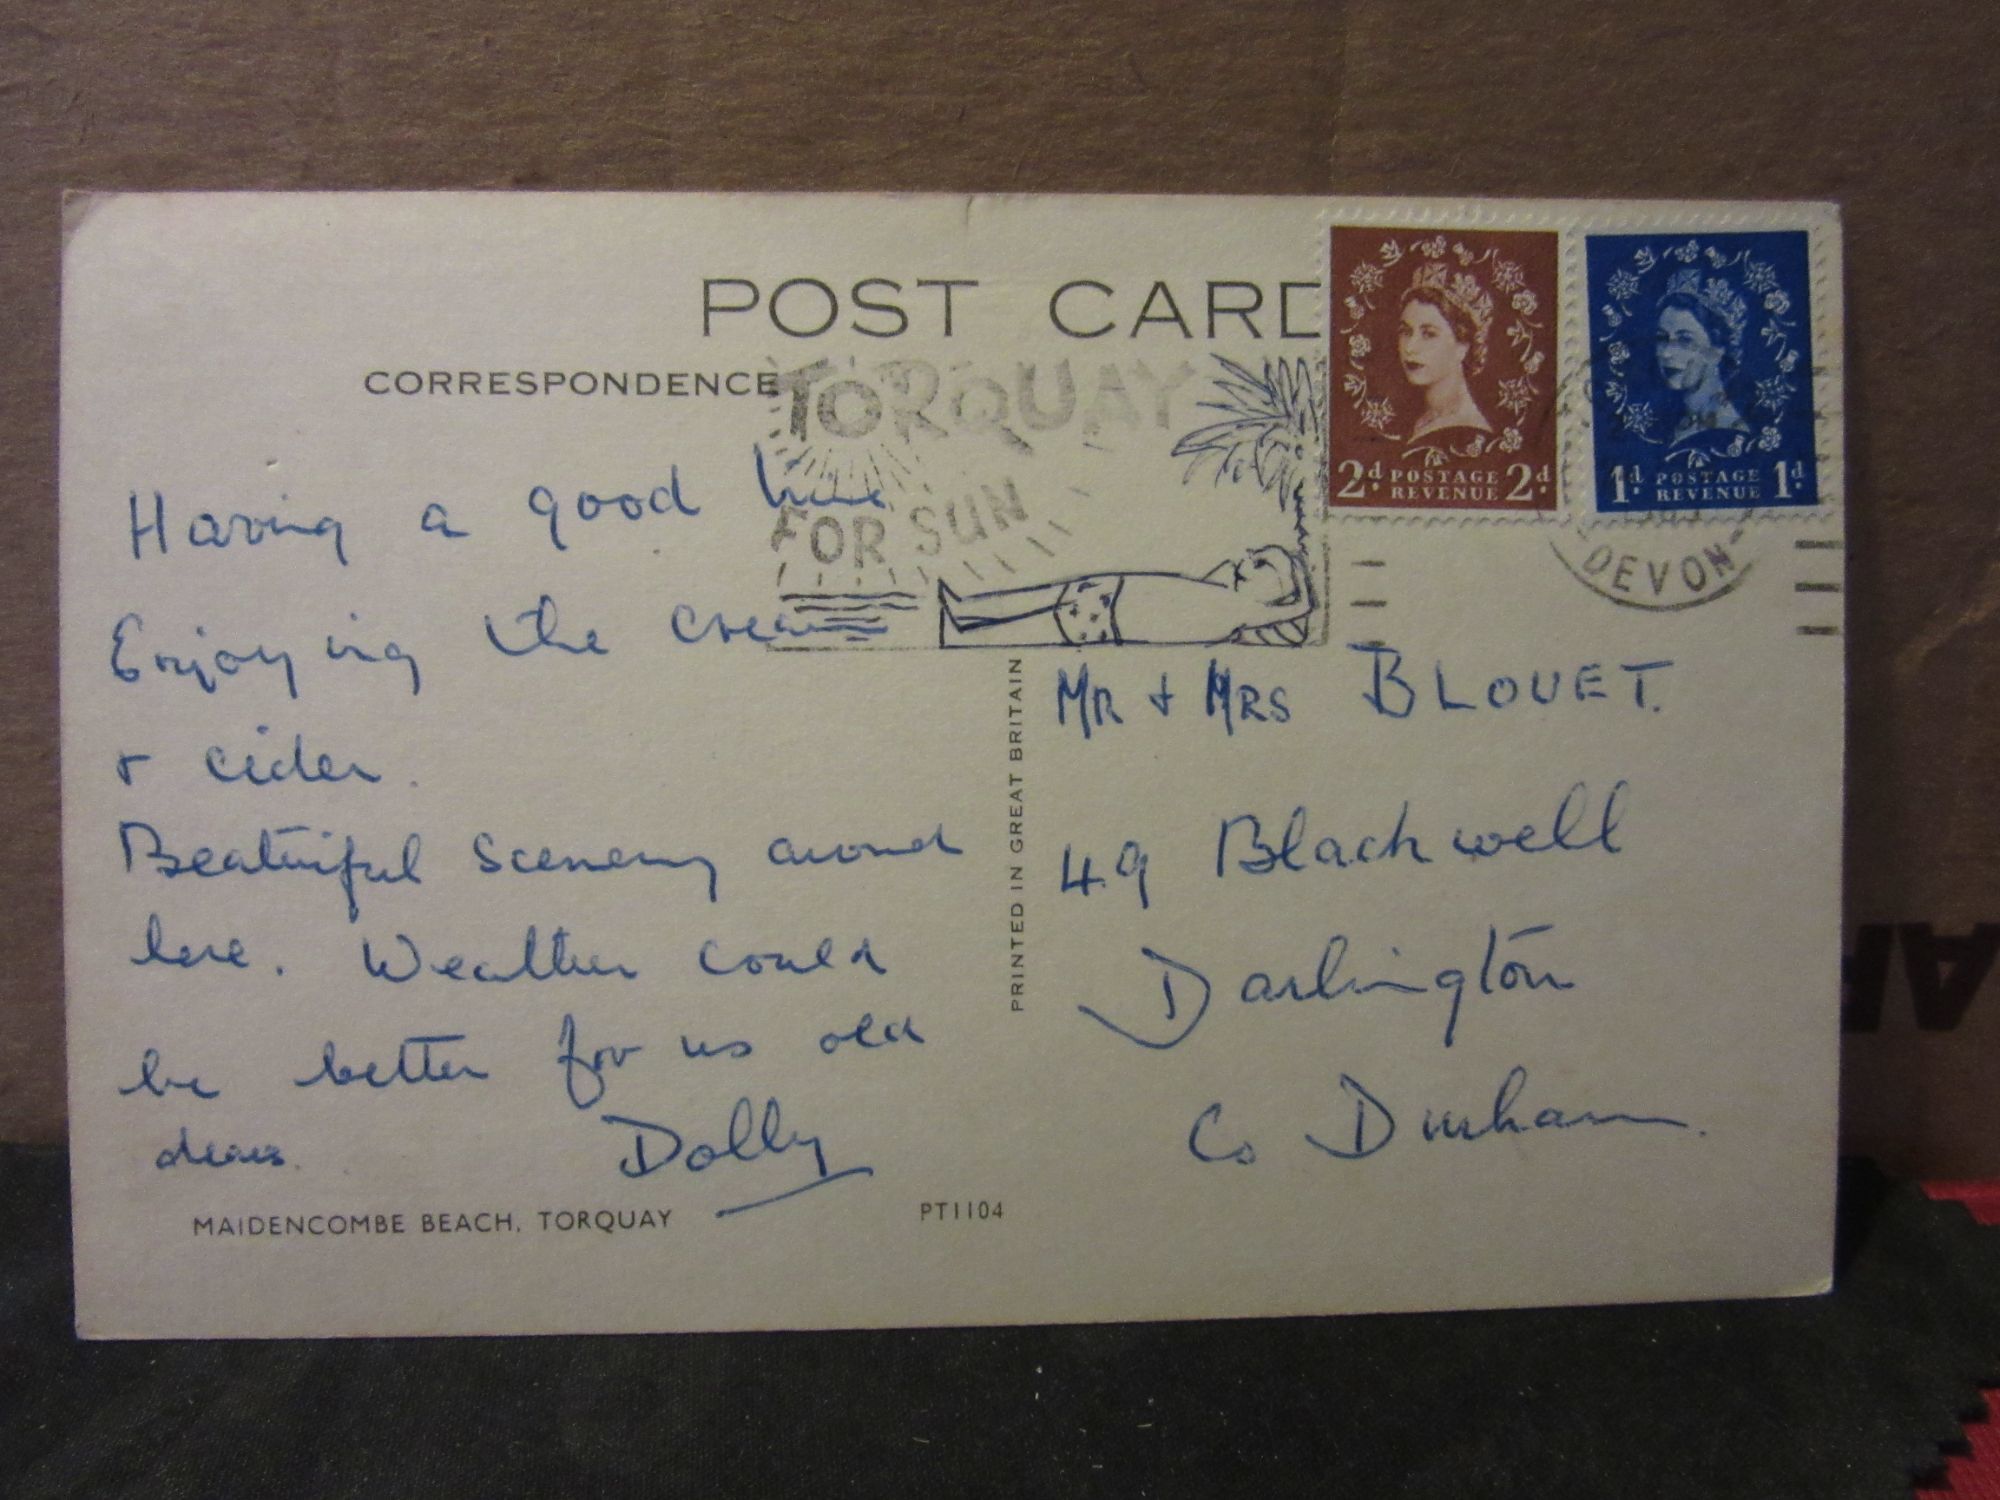 POST CARD
CORRESPONDENCE
TORQUAY
FOR SUN
2d. POSTAGE REVENUE 2d.
1d. POSTAGE REVENUE 1d.
DEVON
Having a good time
Enjoying the cream
+ cider.
Beatuiful scenery around
here. Weather could
be better for us old
dears.
Dolly
MAIDENCOMBE BEACH, TORQUAY
PT1104
PRINTED IN GREAT BRITAIN
MR + MRS BLOUET.
49 Blackwell
Darlington
Co Durham.